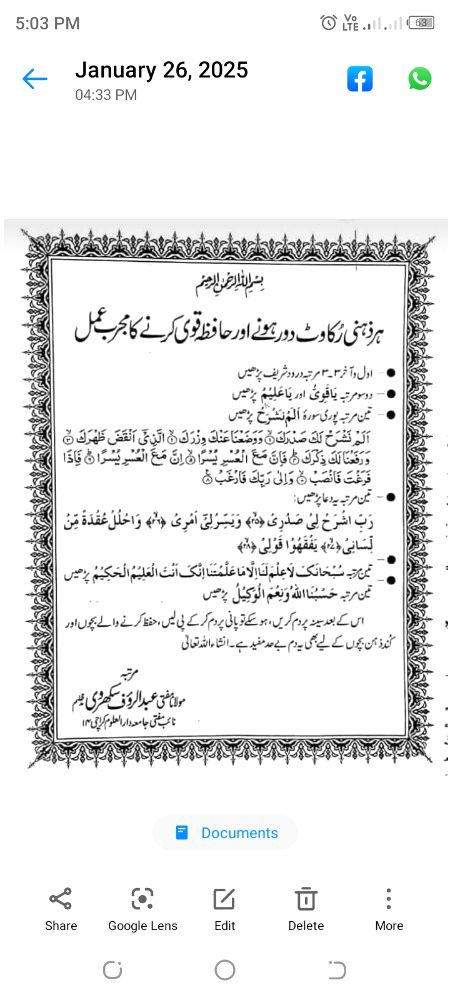 5:03 PM
Vo LTE 63
January 26, 2025
04:33 PM
بسم اللہ الرحمن الرحیم
ہر ذہنی رُکاوٹ دور ہونے اور حافظہ قوی کرنے کا مجرب عمل
● اول و آخر ۳-۳ مرتبہ درود شریف پڑھیں
● دو سو مرتبہ یَاقَوِیُّ اور یَاعَلِیْمُ پڑھیں
● تین مرتبہ پوری سورۂ اَلَمْ نَشْرَحْ پڑھیں
اَلَمْ نَشْرَحْ لَكَ صَدْرَكَ ۝۱ وَوَضَعْنَا عَنْكَ وِزْرَكَ ۝۲ الَّذِیْٓ اَنْقَضَ ظَهْرَكَ ۝۳
وَرَفَعْنَا لَكَ ذِكْرَكَ ۝۴ فَاِنَّ مَعَ الْعُسْرِ یُسْرًا ۝۵ اِنَّ مَعَ الْعُسْرِ یُسْرًا ۝۶ فَاِذَا
فَرَغْتَ فَانْصَبْ ۝۷ وَاِلٰی رَبِّكَ فَارْغَبْ ۝۸
● تین مرتبہ یہ دعا پڑھیں:
رَبِّ اشْرَحْ لِیْ صَدْرِیْ ﴿۲۵﴾ وَیَسِّرْلِیْٓ اَمْرِیْ ﴿۲۶﴾ وَاحْلُلْ عُقْدَةً مِّنْ
لِّسَانِیْ ﴿۲۷﴾ یَفْقَهُوْا قَوْلِیْ ﴿۲۸﴾
● تین مرتبہ سُبْحَانَكَ لَاعِلْمَ لَنَا اِلَّا مَا عَلَّمْتَنَا اِنَّكَ اَنْتَ الْعَلِیْمُ الْحَكِیْمُ پڑھیں
● تین مرتبہ حَسْبُنَا اللّٰهُ وَنِعْمَ الْوَكِیْلُ پڑھیں
اس کے بعد سینہ پر دم کریں، ہو سکے تو پانی پر دم کر کے پی لیں، حفظ کرنے والے بچوں اور
کُند ذہن بچوں کے لیے بھی یہ دم بے حد مفید ہے۔ انشاء اللہ تعالیٰ
مرتبہ
مولانا مفتی عبدالرؤف سکھروی
نائب مفتی جامعہ دارالعلوم کراچی ۱۴
Documents
Share
Google Lens
Edit
Delete
More